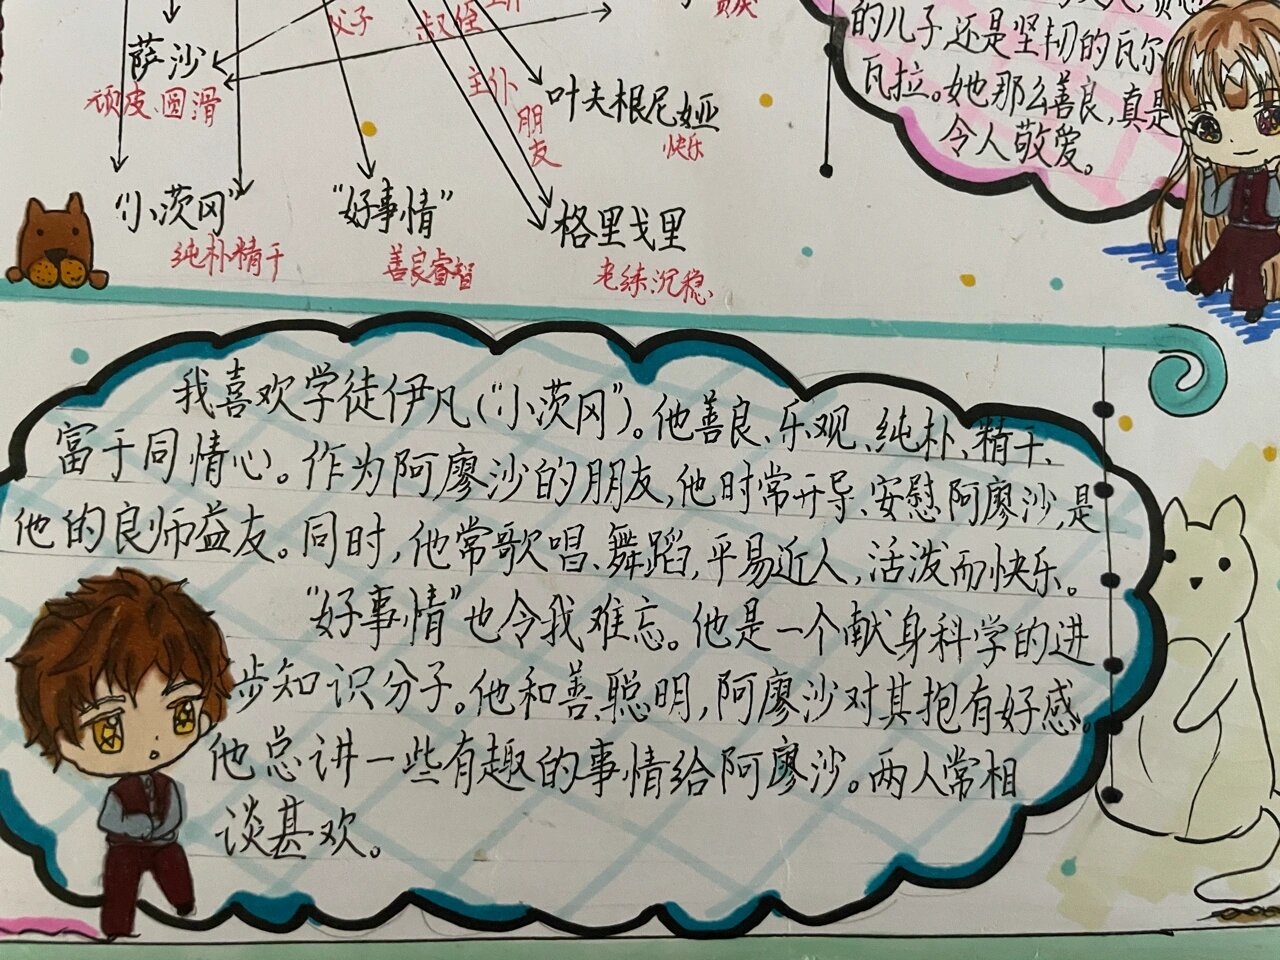 父子
叔侄
萨沙
顽皮、圆滑
主仆
朋友
叶夫根尼娅
快乐
的儿子还是坚韧的瓦尔
瓦拉。她那么善良,真是
令人敬爱。
“小茨冈”
纯朴精干
“好事情”
善良睿智
格里戈里
老练沉稳
我喜欢学徒伊凡(“小茨冈”)。他善良、乐观、纯朴、精干、
富于同情心。作为阿廖沙的朋友,他时常开导、安慰阿廖沙,是
他的良师益友。同时,他常歌唱、舞蹈,平易近人,活泼而快乐。
“好事情”也令我难忘。他是一个献身科学的进
步知识分子。他和善、聪明,阿廖沙对其抱有好感。
他总讲一些有趣的事情给阿廖沙。两人常相
谈甚欢。